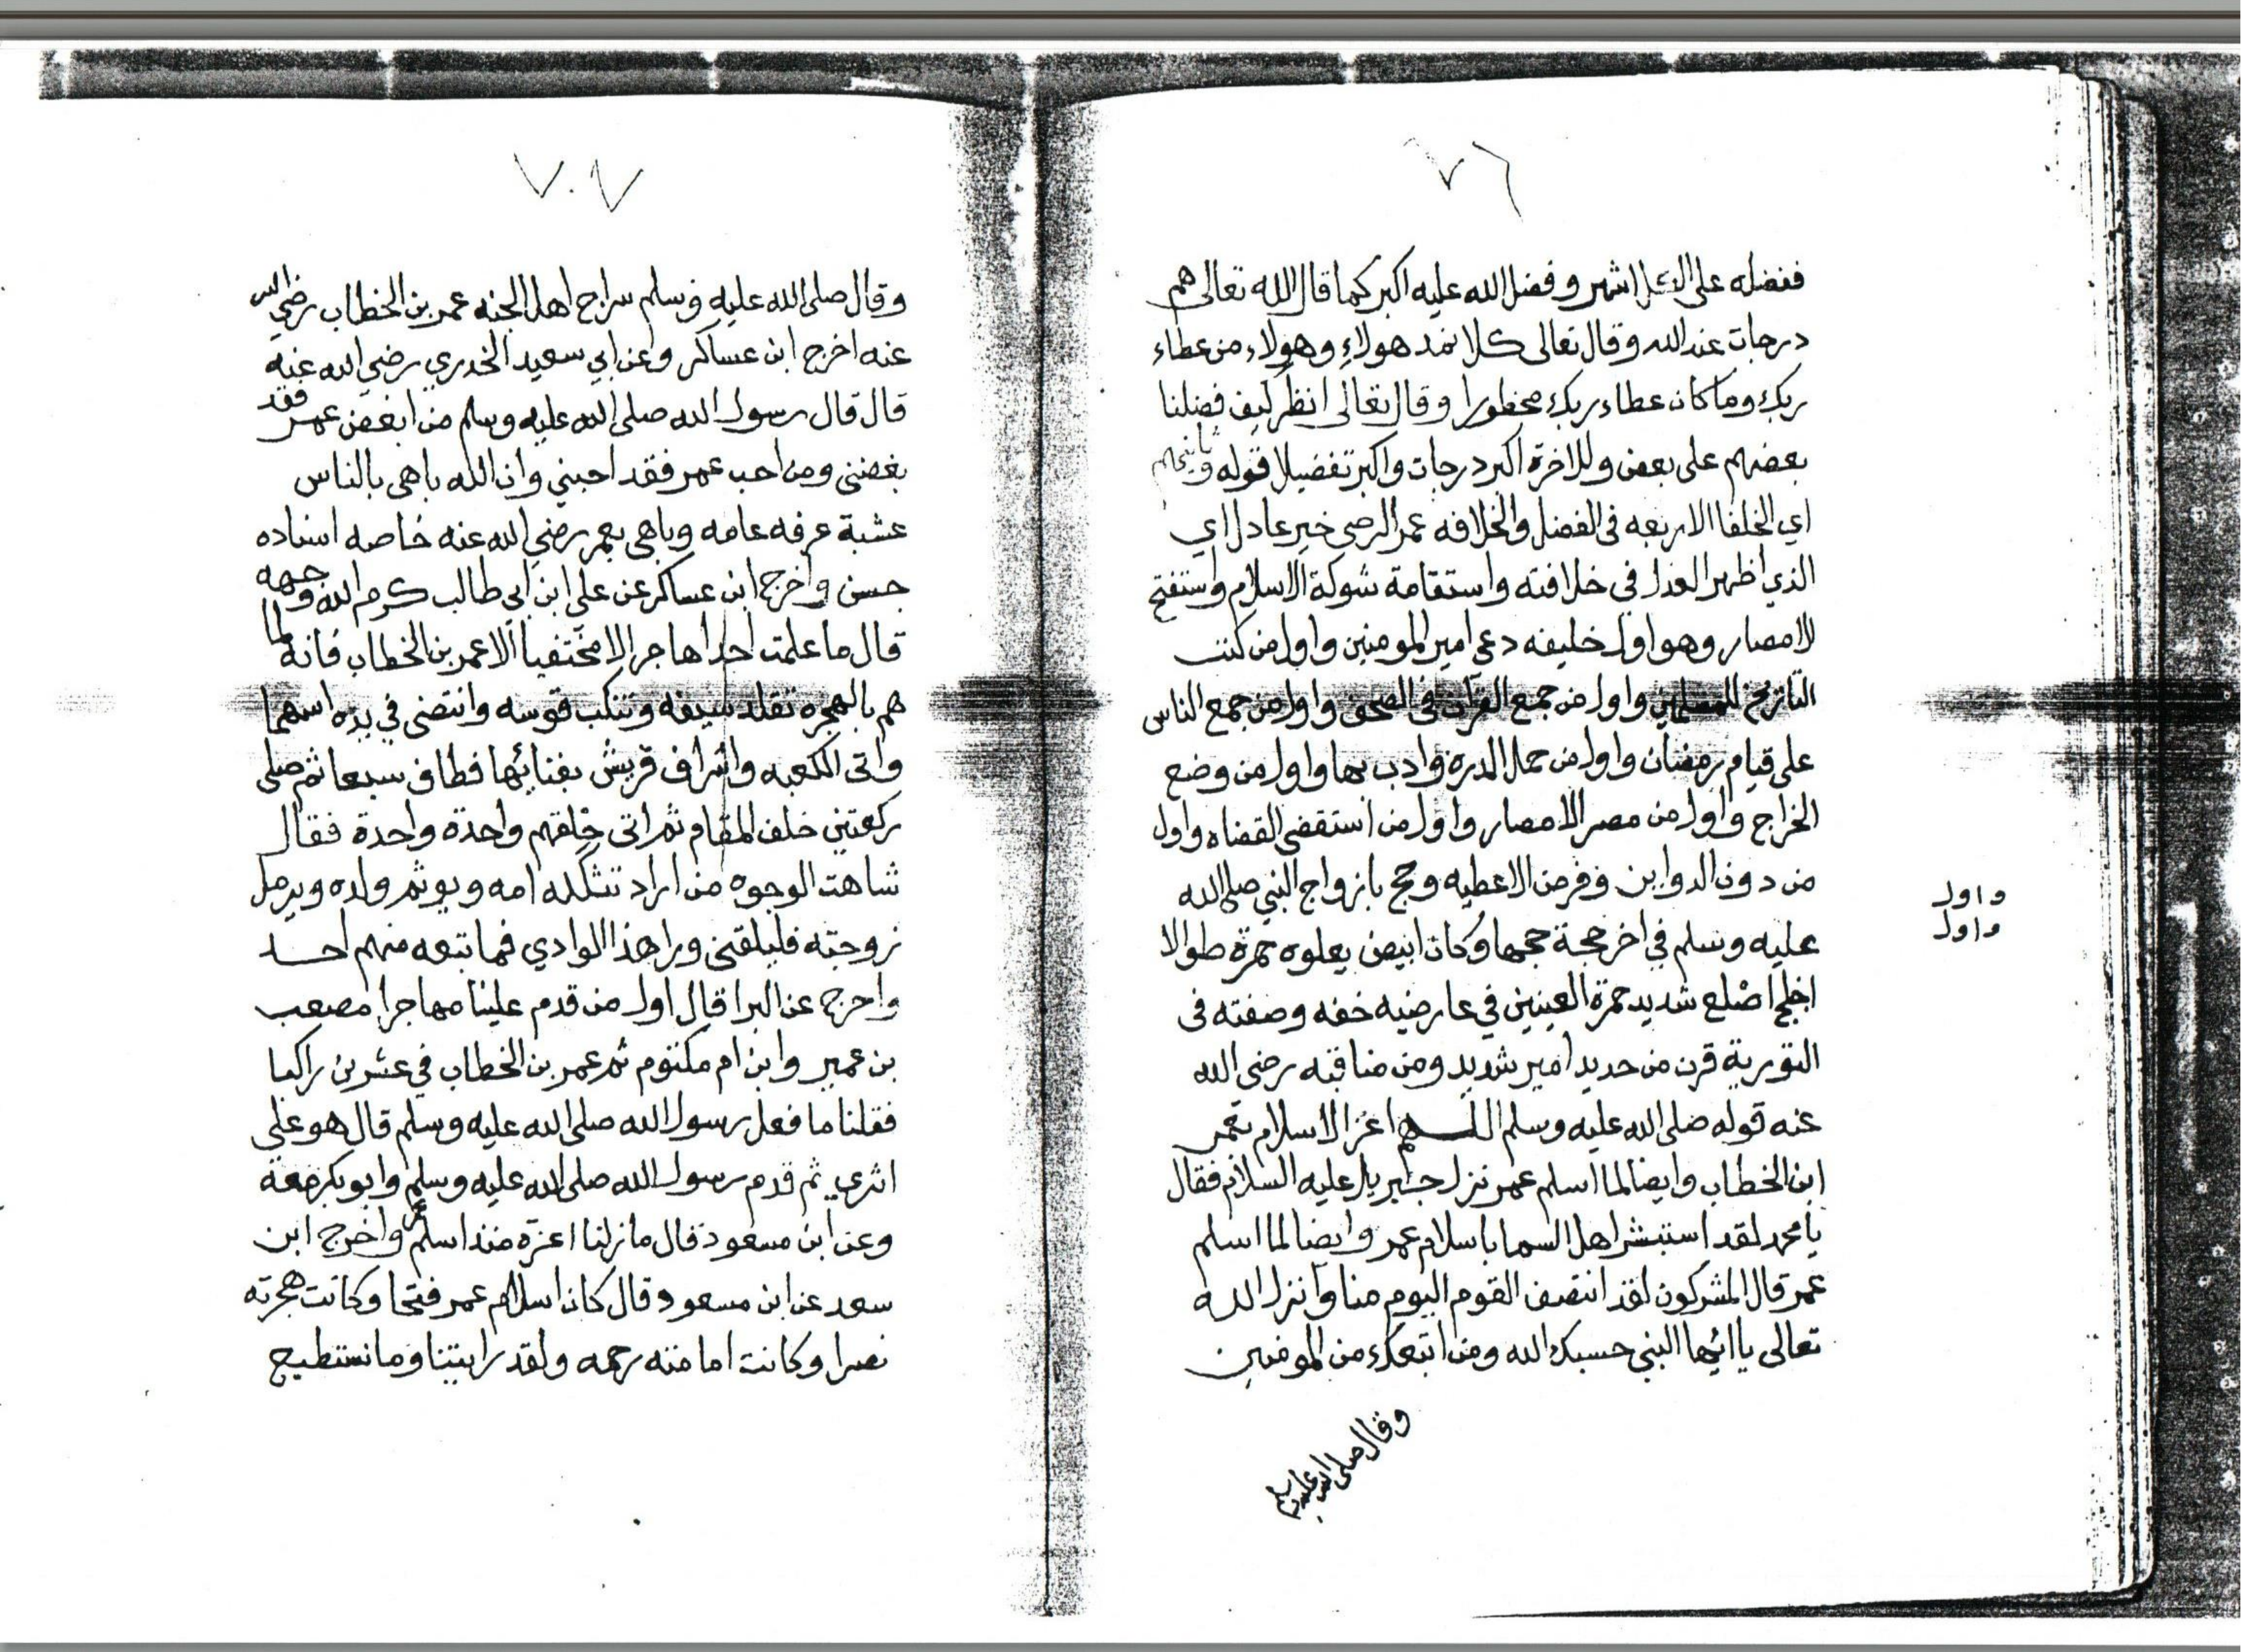 ٧٦
ففضله على الكل اشهر وفضل الله عليه اكبر كما قال الله تعالى هم
درجات عند الله وقال تعالى كلا نمد هولاء وهولاء من عطاء
ربك وما كان عطاء ربك محظورا وقال تعالى انظر كيف فضلنا
بعضهم على بعض وللاخرة اكبر درجات واكبر تفضيلا قوله
اي الخلفا الاربعه في الفضل والخلافه عمر الرضي خير عادل اي
الذي اظهر العدل في خلافته واستقامة شوكة الاسلام واستفتح
الامصار وهو اول خليفه دعي امير المومنين واول من كتب
التاريخ للمسلمين واول من جمع القران في الصحف واول من جمع الناس
على قيام رمضان واول من حمل الدره وادب بها واول من وضع
الخراج واول من مصر الامصار واول من استقضى القضاه واول
من دون الدواين وفرض الاعطيه وحج بازواج النبي صلى الله
واول
واول
عليه وسلم في اخر حجة حجها وكان ابيض يعلوه حمرة طوالا
اجلح اضلع شديد حمرة العينين في عارضيه خفه وصفته في
التورية قرن من حديد امير شديد ومن مناقبه رضي الله
عنه قوله صلى الله عليه وسلم اللهم اعز الاسلام بعمر
ابن الخطاب وايضا لما اسلم عمر نزل جبريل عليه السلام فقال
يا محمد لقد استبشر اهل السما باسلام عمر وايضا لما اسلم
عمر قال المشركون لقد انتصف القوم اليوم منا وانزل الله
تعالى يا ايها النبي حسبك الله ومن اتبعك من المومنين
وقال صلى الله عليه وسلم
٧٠٧
وقال صلى الله عليه وسلم سراج اهل الجنه عمر بن الخطاب رضي الله
عنه اخرج ابن عساكر وعن ابي سعيد الخدري رضي الله عنه
قال قال رسول الله صلى الله عليه وسلم من ابغض عمر فقد
بغضني ومن احب عمر فقد احبني وان الله باهى بالناس
عشية عرفه عامه وباهى بعمر رضي الله عنه خاصه اسناده
حسن واخرج ابن عساكر عن علي ابن ابي طالب كرم الله وجهه
قال ما علمت احدا هاجر الا مختفيا الا عمر بن الخطاب فانه لما
هم بالهجره تقلد سيفه وتنكب قوسه وانتضى في يده اسهما
واتى الكعبه واشراف قريش بفنائها فطاف سبعا ثم صلى
ركعتين خلف المقام ثم اتى حلقهم واحدة واحدة فقال
شاهت الوجوه من اراد تثكله امه ويوتم ولده ويرمل
زوجته فليلقني ورا هذا الوادي فما تبعه منهم احد
واخرج عن البرا قال اول من قدم علينا مهاجرا مصعب
بن عمير وابن ام مكتوم ثم عمر بن الخطاب في عشرين راكبا
فقلنا ما فعل رسول الله صلى الله عليه وسلم قال هو على
اثري ثم قدم رسول الله صلى الله عليه وسلم وابو بكر معه
وعن ابن مسعود قال ما زلنا اعزة منذ اسلم عمر واخرج ابن
سعد عن ابن مسعود قال كان اسلام عمر فتحا وكانت هجرته
نصرا وكانت امامته رحمه ولقد رايتنا وما نستطيع